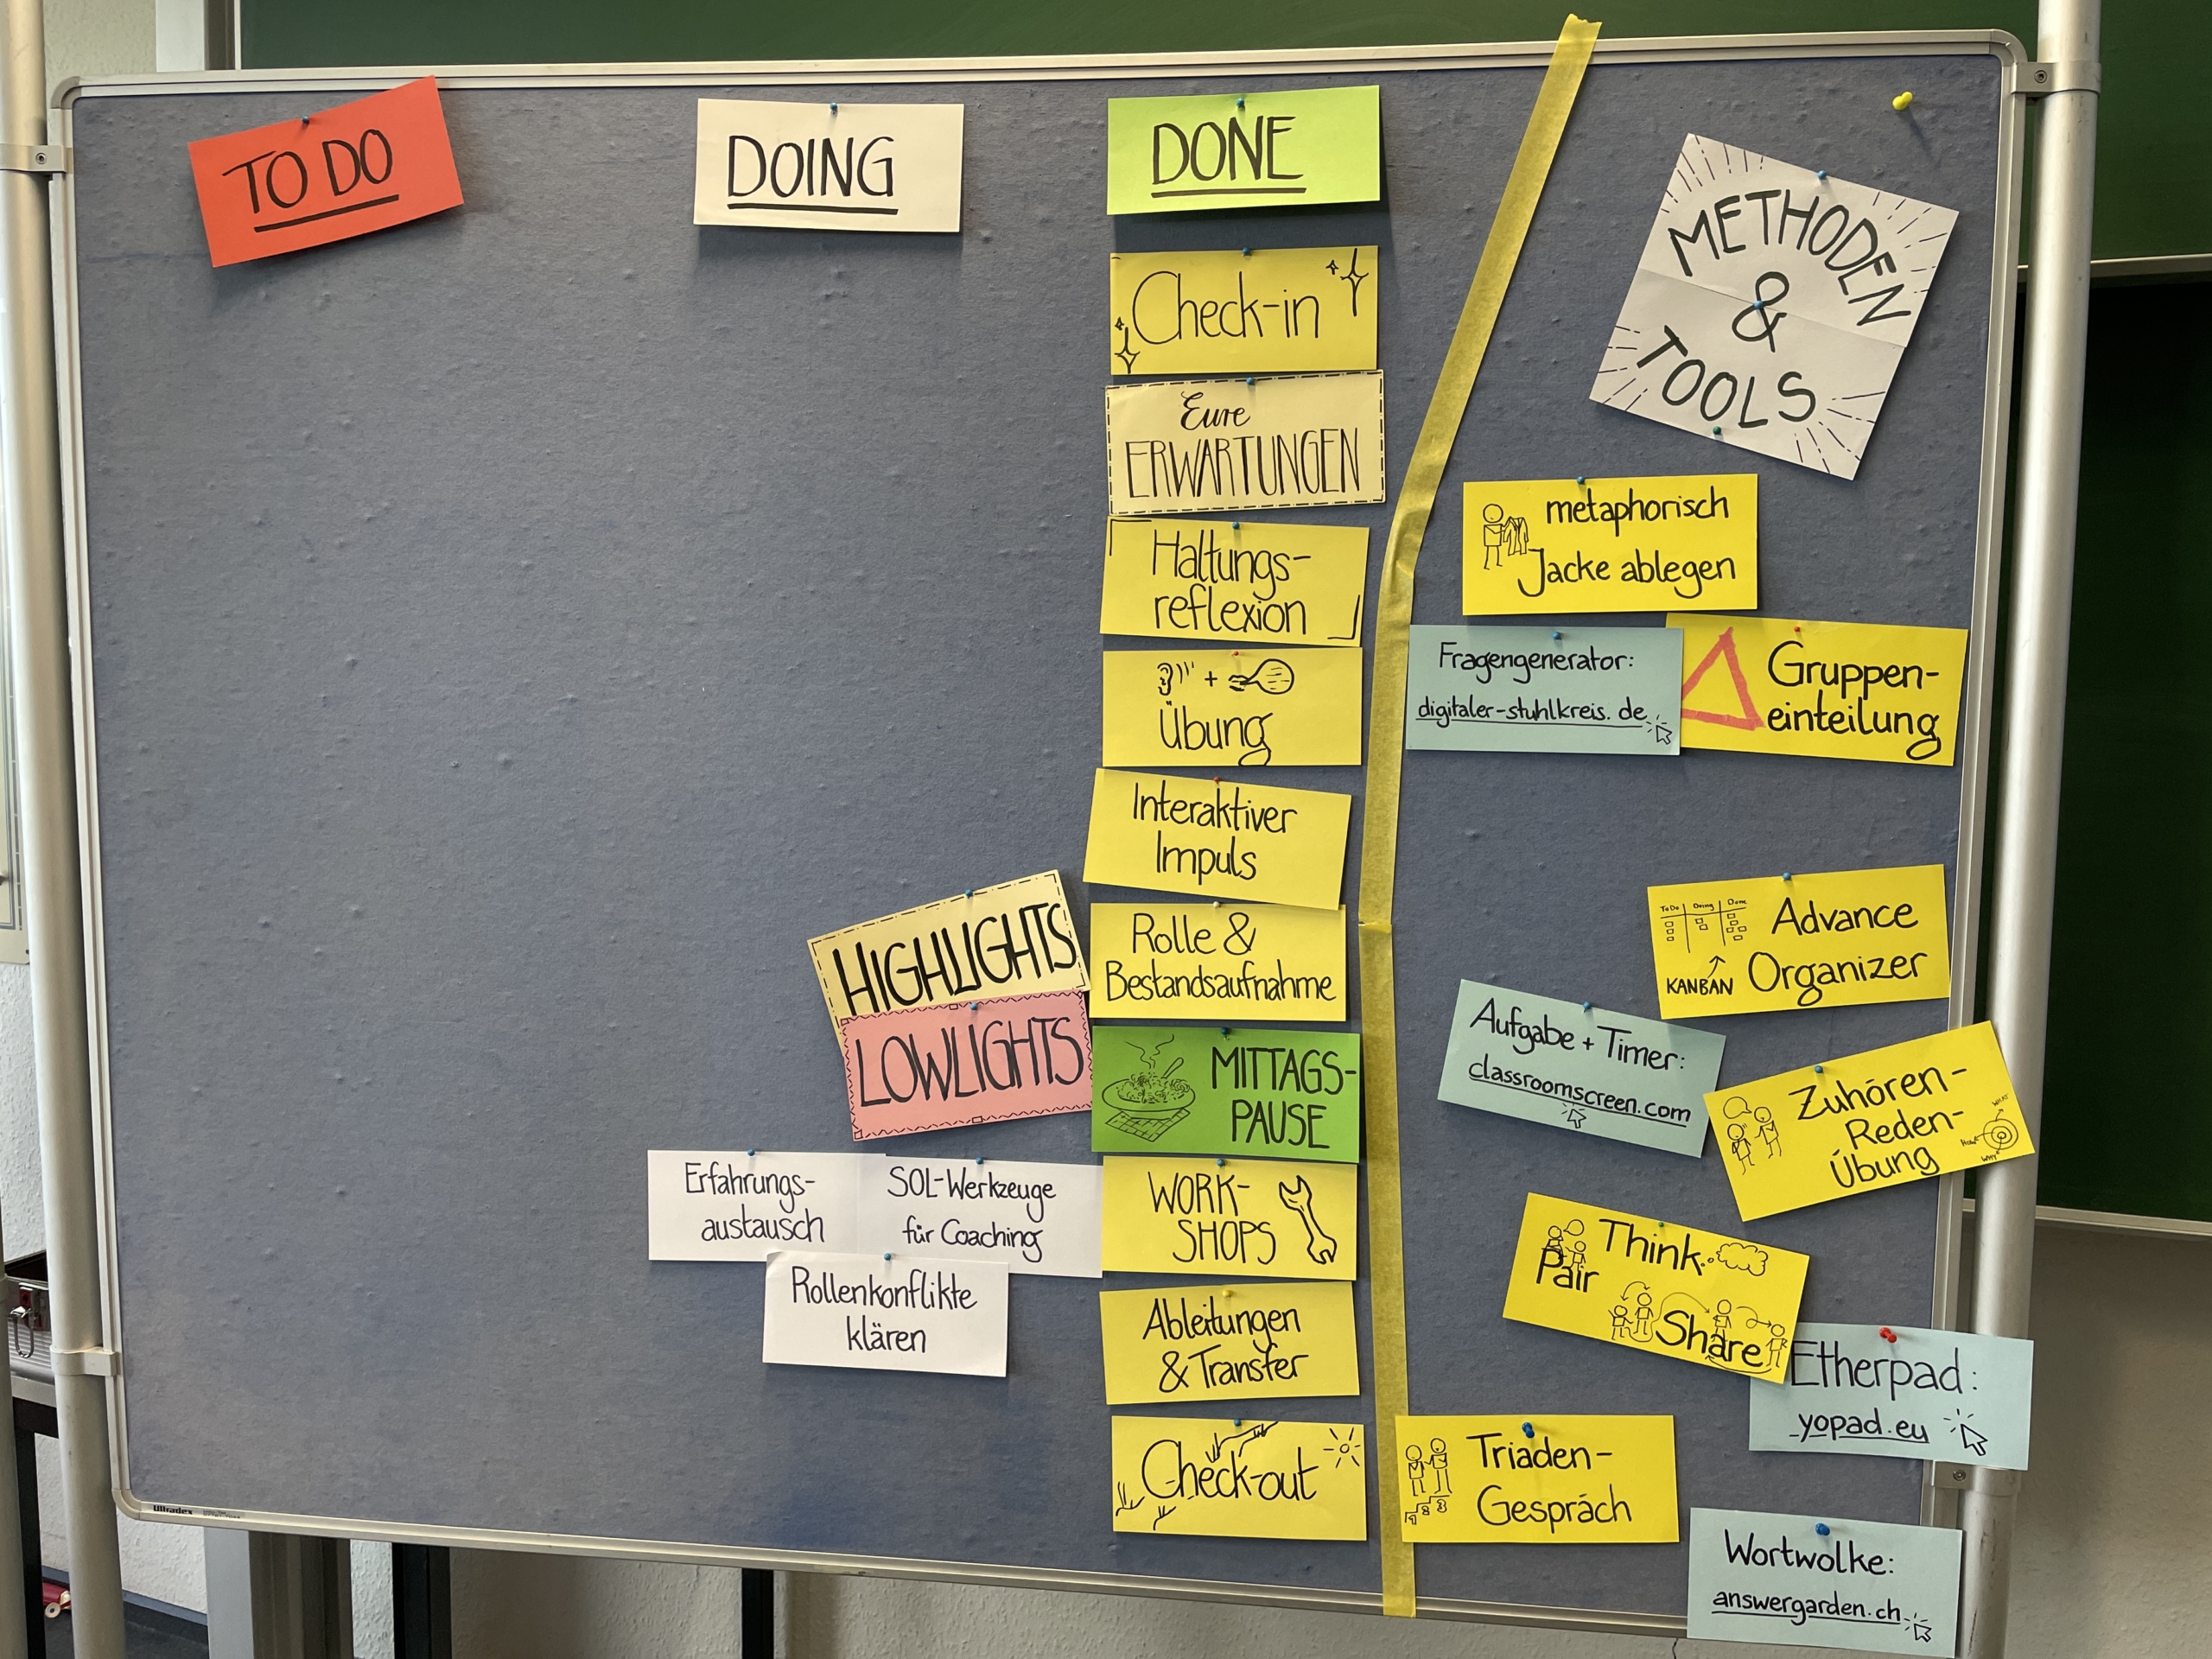 TO DO
DOING
DONE
Check-in
Eure
ERWARTUNGEN
Haltungs-
reflexion
+
Übung
Interaktiver
Impuls
HIGHLIGHTS
LOWLIGHTS
Rolle &
Bestandsaufnahme
MITTAGS-
PAUSE
Erfahrungs-
austausch
SOL-Werkzeuge
für Coaching
Rollenkonflikte
klären
WORK-
SHOPS
Ableitungen
& Transfer
Check-out
METHODEN
&
TOOLS
metaphorisch
Jacke ablegen
Fragengenerator:
digitaler-stuhlkreis.de
Gruppen-
einteilung
ToDo Doing Done
Advance
KANBAN Organizer
Aufgabe + Timer:
classroomscreen.com
Zuhören-
Reden-
Übung
WHAT
HOW
WHY
Think
Pair
Share
Etherpad:
yopad.eu
Triaden-
Gespräch
1 2 3
Wortwolke:
answergarden.ch
Ultradex